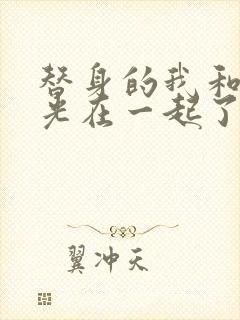 替身的我和
光在一起了
翼冲天